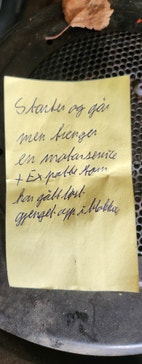 Starter og går
men trenger
en motorservice
+ Expotts som
har gått løst
gjenget opp i blokka